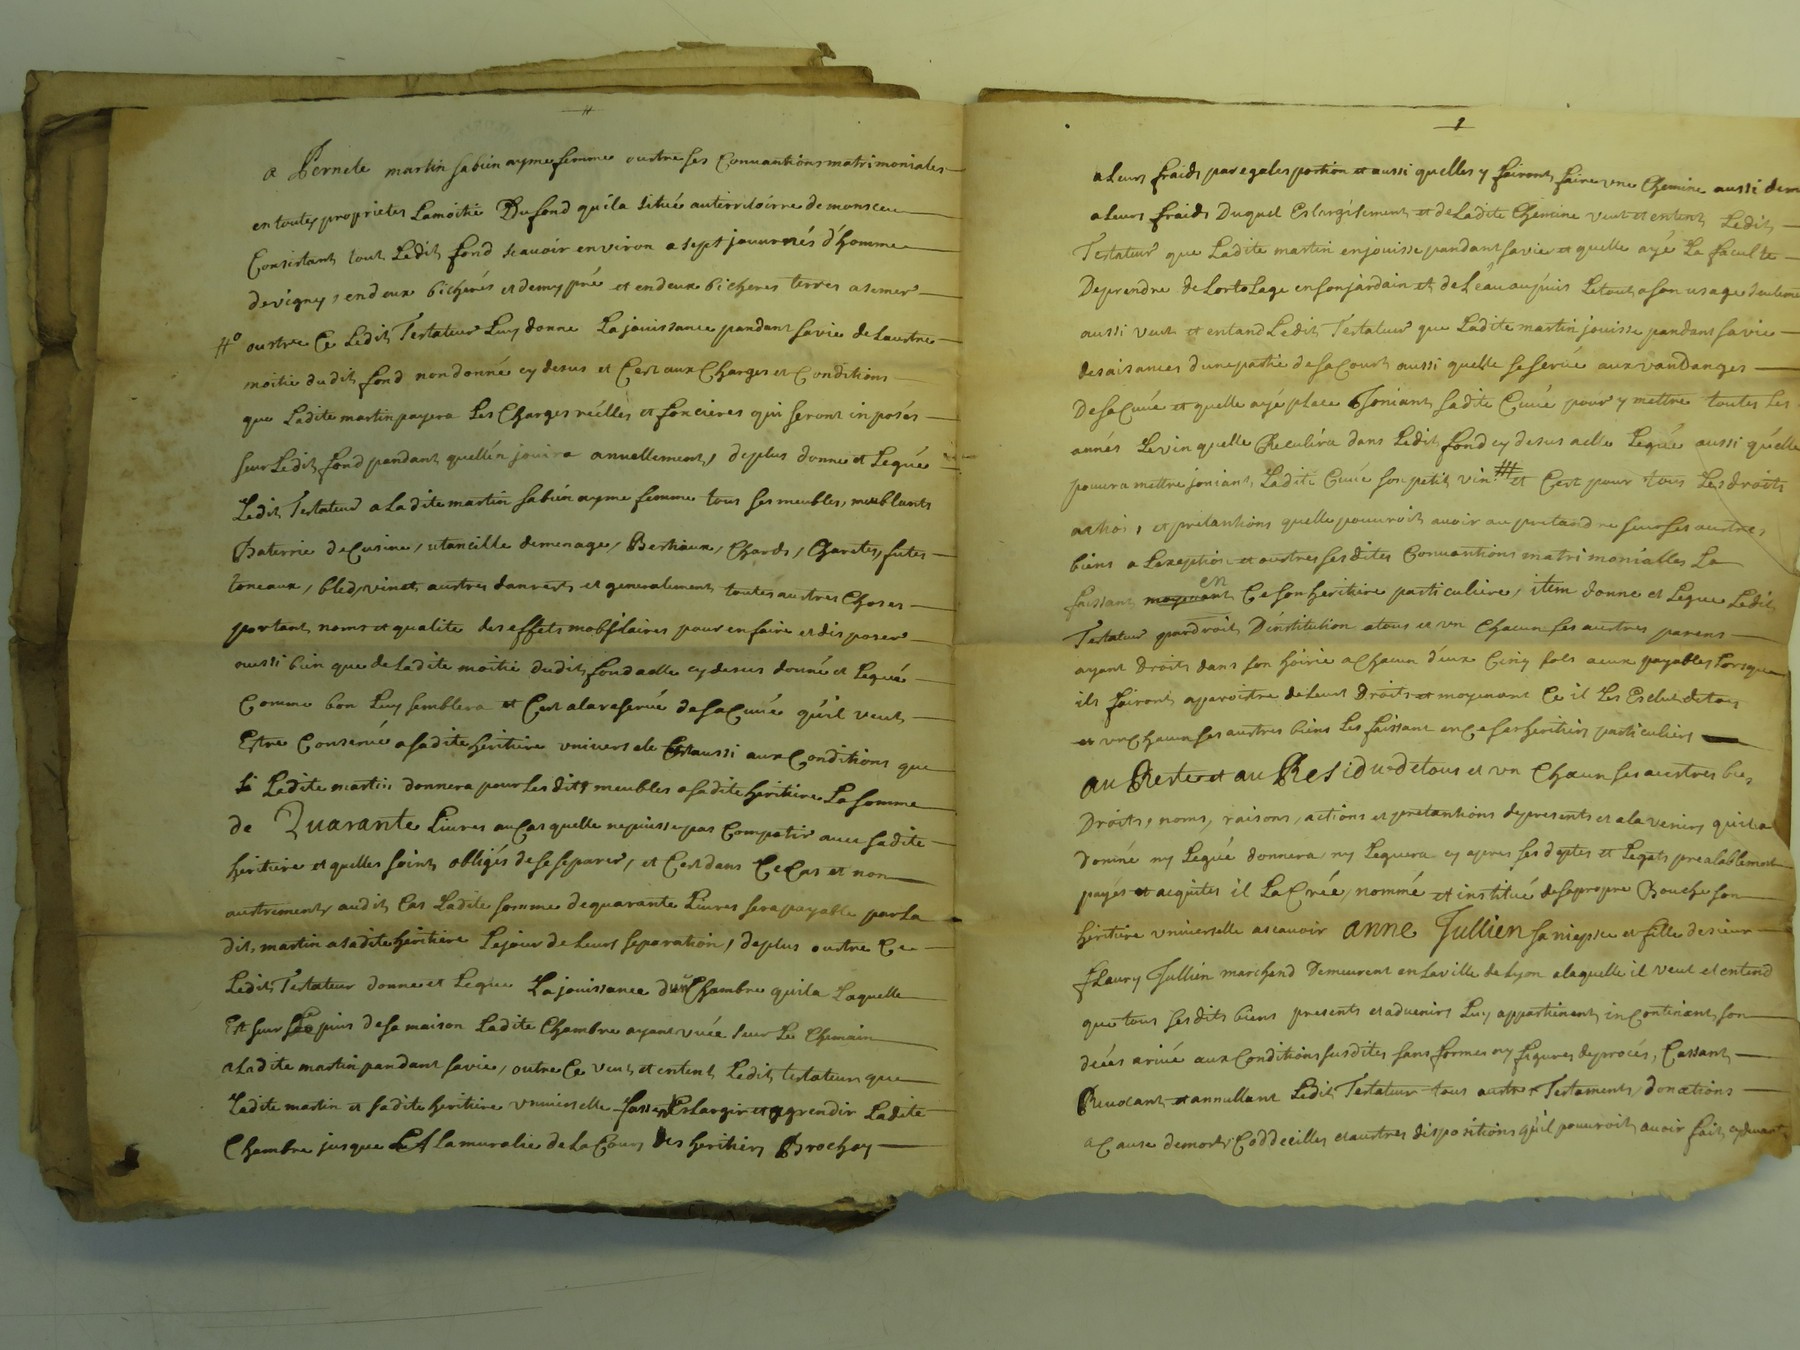 a Pernete martin sa bien aymé femme oustre ses Convantions matrimoniales
en toutes proprietes La moitié Du fond qu'il a situé au terrritoirre de monsceu
Consistant tout Ledit fond scavoir environ a sept journés d'homme
de vigny, en deux bicherés et demy pré et en deux bicheres terres a semer
#° oustre Ce Ledit Testateur Luy donne La jouissance pandant sa vie de Laustre
moitie dudit fond non donné cy desus et C'est aux Charges et Conditions
que Ladite martin payera Les Charges réelles et foncieres qui seront inposés
seur Ledit fond pendant quelle n jouira annuellement, de plus donne et Legue
Ledit Testateur a Ladite martin sa bien ayme femme tous ses meubles, meublants
Baterrie de Cusine, utancille de menage, Berhaux, Chards, Charetes, futes
toneaux, bled, vin et austres danrests et generalement toutes austres Choses
portant noms et qualite des effets mobiliaires pour en faire et disposer
aussi bien que de Ladite moitie dudit fond a elle cy desus donné et Legué
Comme bon Luy semblera et C'est a la reservé de sa Cuvée qu'il veut
Estre Conservé a sa dite heritiere universele Et aussi aux Conditions que
si Ladite martin donnera pour Lesdits meubles a sa dite heritiere La somme
de Quarante Livres au Cas quelle ne puisse pas Compatir avec sa dite
heritiere et quelles soint obligés de se separer, et C'est dans Ce Cas et non
austrement, audit Cas Ladite somme de quarante Livres sera payable par La
dit, martin a sa dite heritiere Le jour de Leurs separation, de plus oustre Ce
Ledit Testateur donne et Legue La jouissance d'un Chambre qu'il a Laquelle
Est sur Le puis de sa maison Ladite Chambre ayant vuée seur Le Chemain
a Ladite martin pandant sa vie, outre Ce veut et entent Ledit testateur que
Ladite martin et sa dite heritiere universelle fassent Eslargir et agrendir Ladite
Chambre jusque A La muralie de La Cour des heritiers Brochay
a Leurs fraids par egales portion et aussi quelles y fairont faire une Chemine aussi de
a Leurs fraids Duquel Eslargisement et de Ladite Chemine veut et entent Ledit
Testateur que Ladite martin en jouisse pandant sa vie et quelle ayé La faculte
De prendre de Lortolage en son jardain et de L'éau au puis Le tout a son usage seuleme
aussi veut et entand Ledit Testateur que Ladite martin jouisse pandant sa vie
des aisances d'une partie de sa Court aussi quelle se servé aux vandanges
De sa Cuvé et quelle ayé place Joniant sa dite Cuvé pour y mettre toutes Les
annés Le vin quelle Receulira dans Ledit fond cy desus a elle Legué aussi quelle
pouvra mettre joniant Ladite Cuvé son petit vin # et C'est pour tous Les droits
actions, et pretantions quelle pouvroit avoir au pretandre seur ses austres
biens a Lexeption et austres ses dites Convantions matrimonialles La
faissant en Ce son heritiere particuliere, item donne et Legue Ledit
Testateur par droit D'institution a tous et un Chacun ses austres parens
ayant Droits dans son hoirie a Chacun d'eux Cinq sols a eux payables Lorsque
ils fairont apparoistre de Leurs Droits et moyenant Ce il Les Exclut de tous
et un Chacun ses austres biens Les faissant en Ce ses heritiers particuliers
au Reste et au Residu de tous et un Chacun ses austres bie,
Droits, noms, raisons, actions et pretantions de presents et a la venir, qu'il a
Donné ny Legué donnera ny Leguera cy apres ses deptes et Legats prealablement
payés et acquites il La Créé, nommé et institué de sa propre Bouche son
heritiere universelle a scavoir Anne Jullien sa niepsce et fille de sieur
fLaury Jullien marchend Demeurent en La ville de Lyon a laquelle il veut et entend
que tous ses dits biens presents et advenirs Luy appartienent, incontinant son
décés arivé aux Conditions susdites sans formes ny figures de procés, Cassant
Revocant et annullant Ledit Testateur tous austres Testaments, donations
a Cause de mort, Coddecilles et austres dispositions qu'il pouvroit avoir fait, cy devant